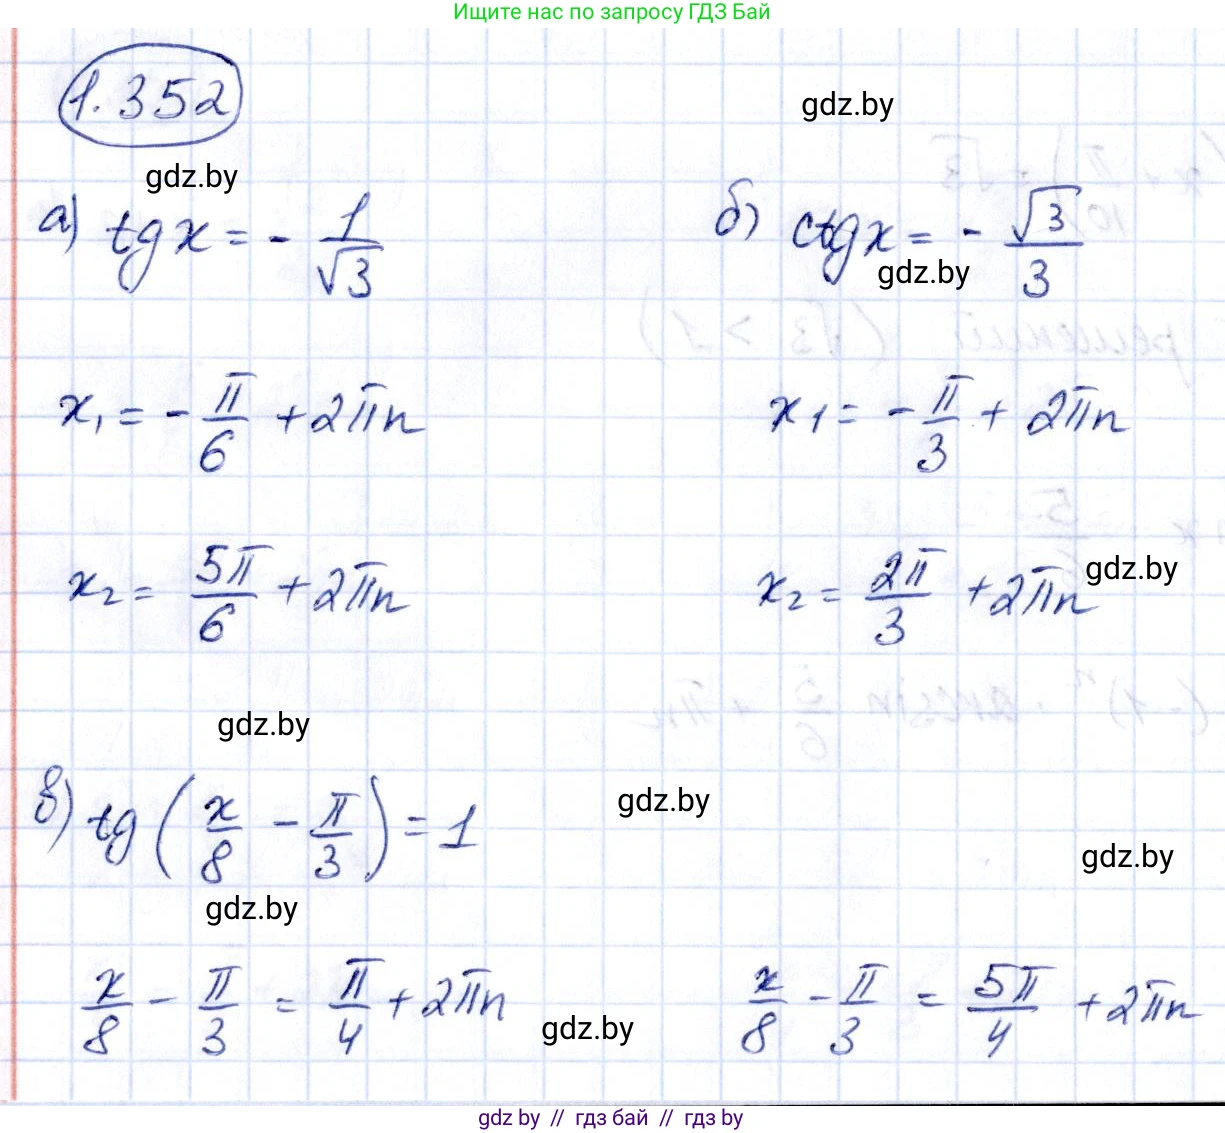 Ищите нас по запросу ГДЗ Бай
1.352
gdz.by
gdz.by
а) tg x = - 1/√3
б) ctg x = - √3/3
gdz.by
x₁ = - π/6 + 2πn
x1 = - π/3 + 2πn
x₂ = 5π/6 + 2πn
x₂ = 2π/3 + 2πn
gdz.by
gdz.by
в) tg (x/8 - π/3) = 1
gdz.by
gdz.by
gdz.by
x/8 - π/3 = π/4 + 2πn
x/8 - π/3 = 5π/4 + 2πn
gdz.by
gdz by // гдз бай // gdz by